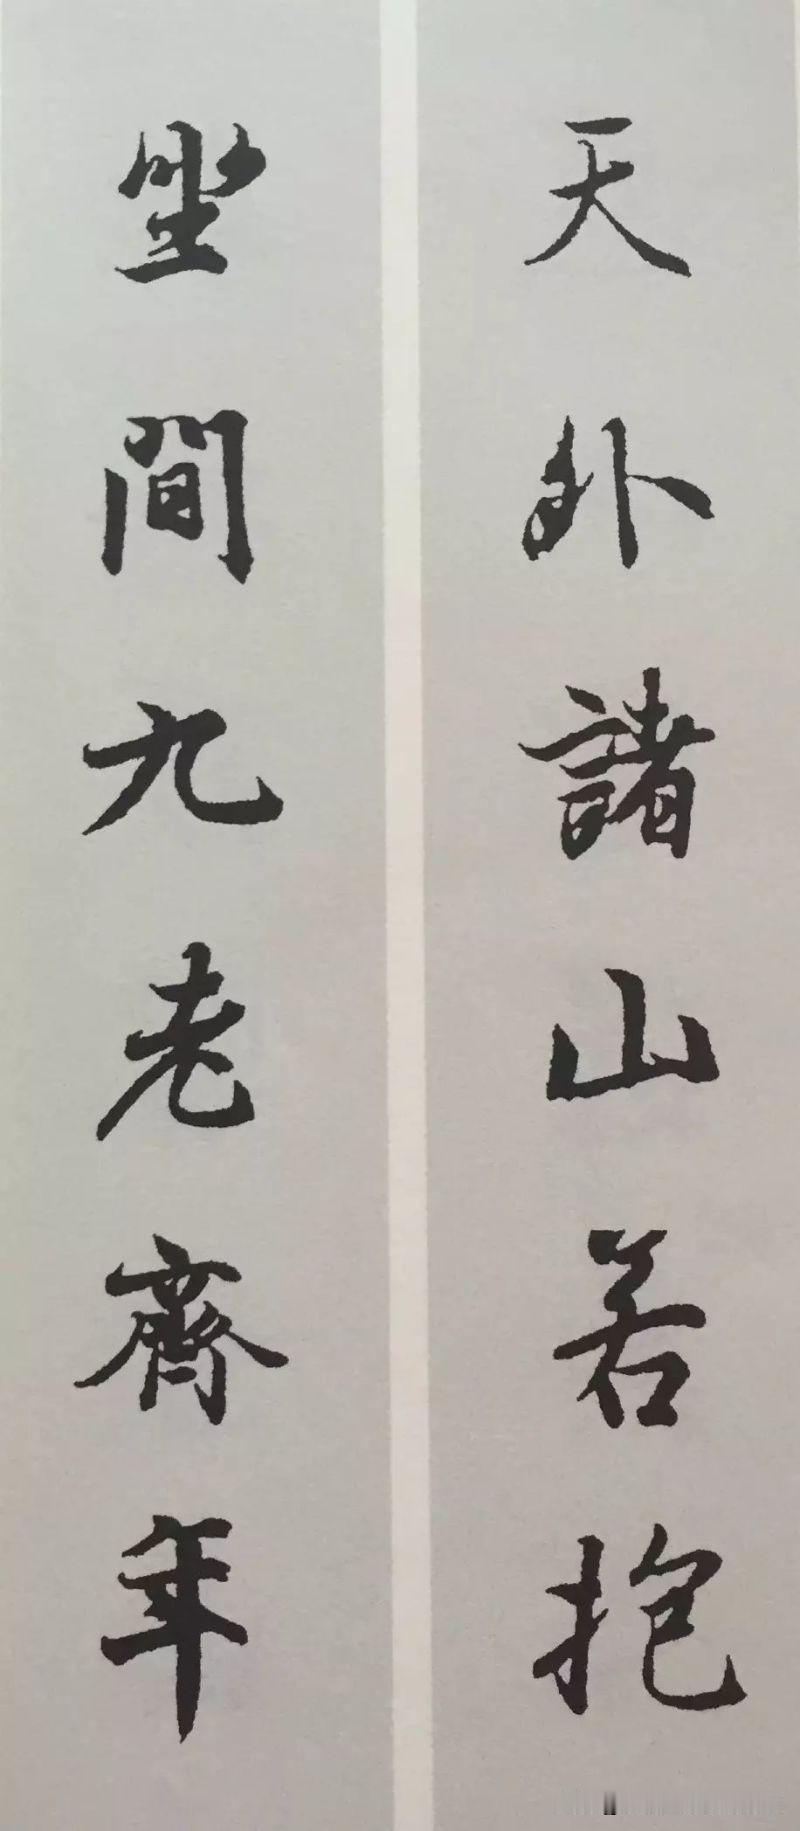 天外諸山若抱
坐間九老齊年